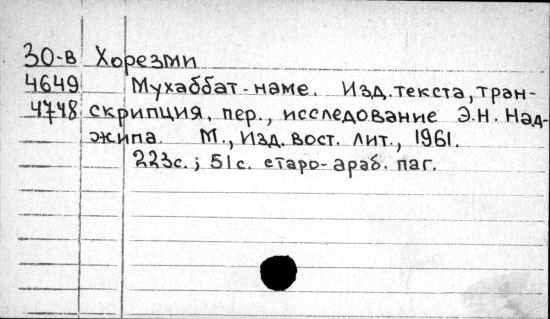 30-в Хорезми
4649 Мухаббат-наме. Изд. текста, тран-
4748 скрипция, пер., исследование Э.Н. Над-
жипа. М., Изд. вост. лит., 1961.
223с.; 51с. старо-араб. паг.